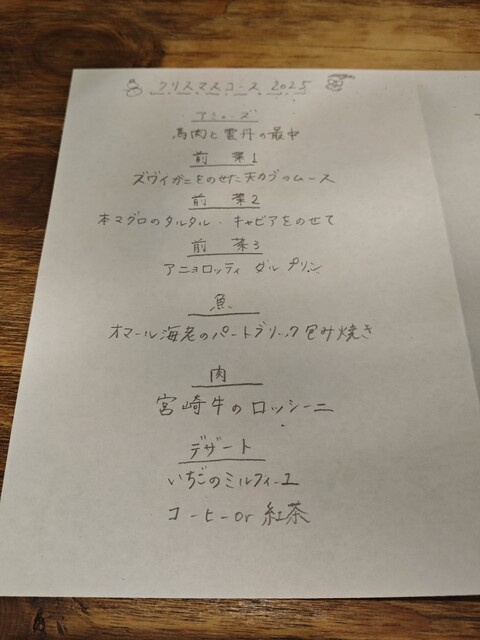 クリスマスコース 2025
アミューズ
馬肉と雲丹の最中
前菜1
ズワイガニをのせた天カブのムース
前菜2
本マグロのタルタル・キャビアをのせて
前菜3
アニョロッティ ダル プリン
魚
オマール海老のパートブリック包み焼き
肉
宮崎牛のロッシーニ
デザート
いちごのミルフィーユ
コーヒーor紅茶